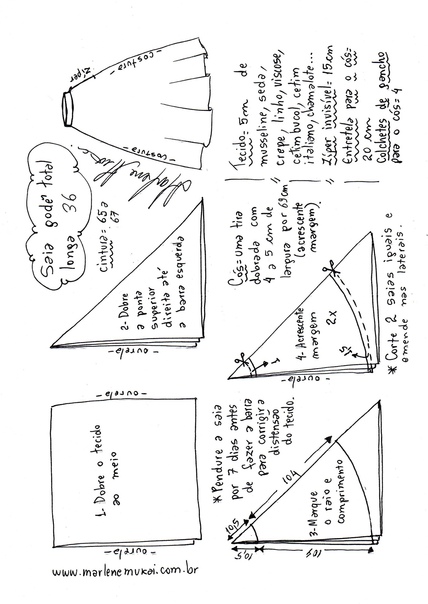 Saia godê total
longa 36
cintura = 65 a
67
Marlene Mukai
zíper
costura
costura
ourela
1- Dobre o tecido
ao meio
ourela
www.marlenemukai.com.br
ourela
2- Dobre
a ponta
superior
direita até
a barra esquerda
Tecido: 5m de
musseline, seda,
crepe, linho, viscose,
cetim bucol, cetim
italiano, chamalote...
Zíper invisível = 15cm
Entretela para o cós=
20 cm
Colchetes de gancho
para o cós = 4
*Pendure a saia
por 7 dias antes
de fazer a barra
para corrigir a
distensão
do tecido.
10,5
104
10,5
104
3- Marque
o raio e
comprimento
Cós = uma tira
dobrada com
4 a 5 cm de
largura por 69cm
(acrescente
margem).
ourela
1
4- Acrescente
margem
2x
1,5
* Corte 2 saias iguais e
emende nas laterais.